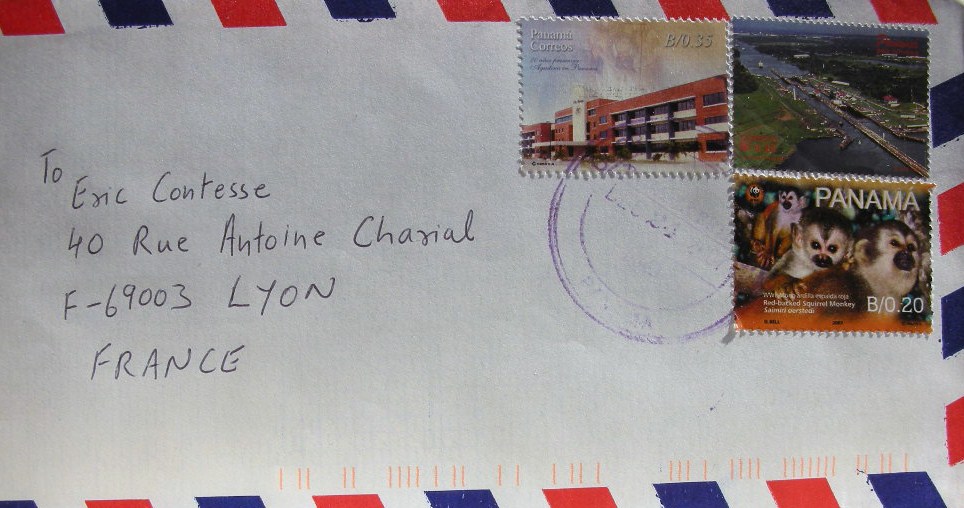 To
Eric Contesse
40 Rue Antoine Charial
F-69003 LYON
FRANCE
Panamá
Correos
B/0.35
PANAMA
Red-backed Squirrel Monkey
Saimiri oerstedi
B/0.20